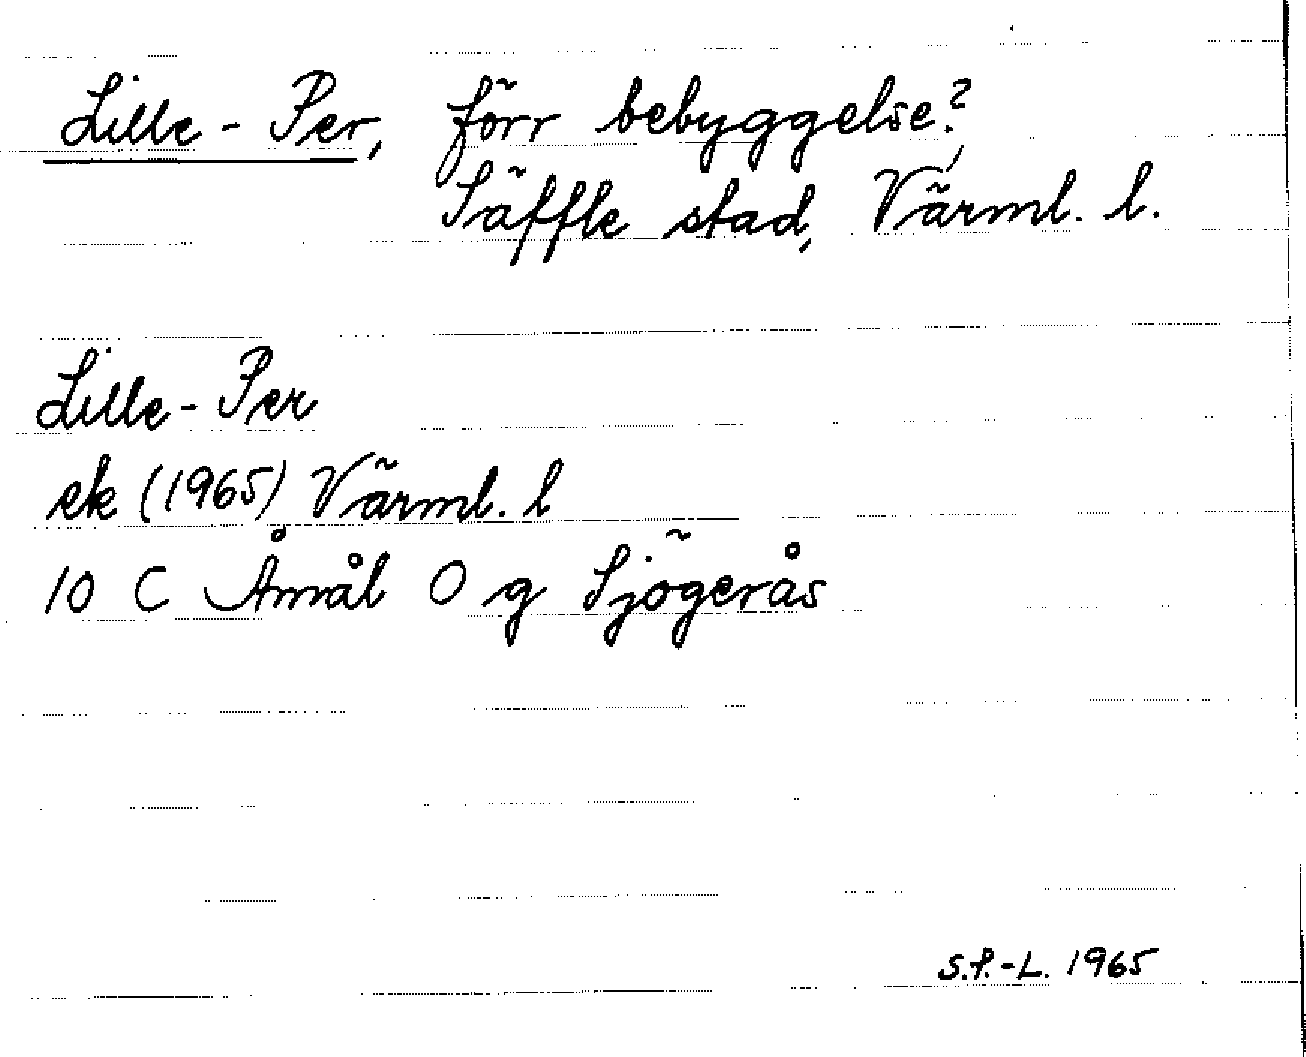 Lille-Per, förr bebyggelse?,
Säffle stad, Värml. l.
Lille-Per
ek (1965) Värml. l
10 C Åmål O g Sjögerås
S.P.-L. 1965